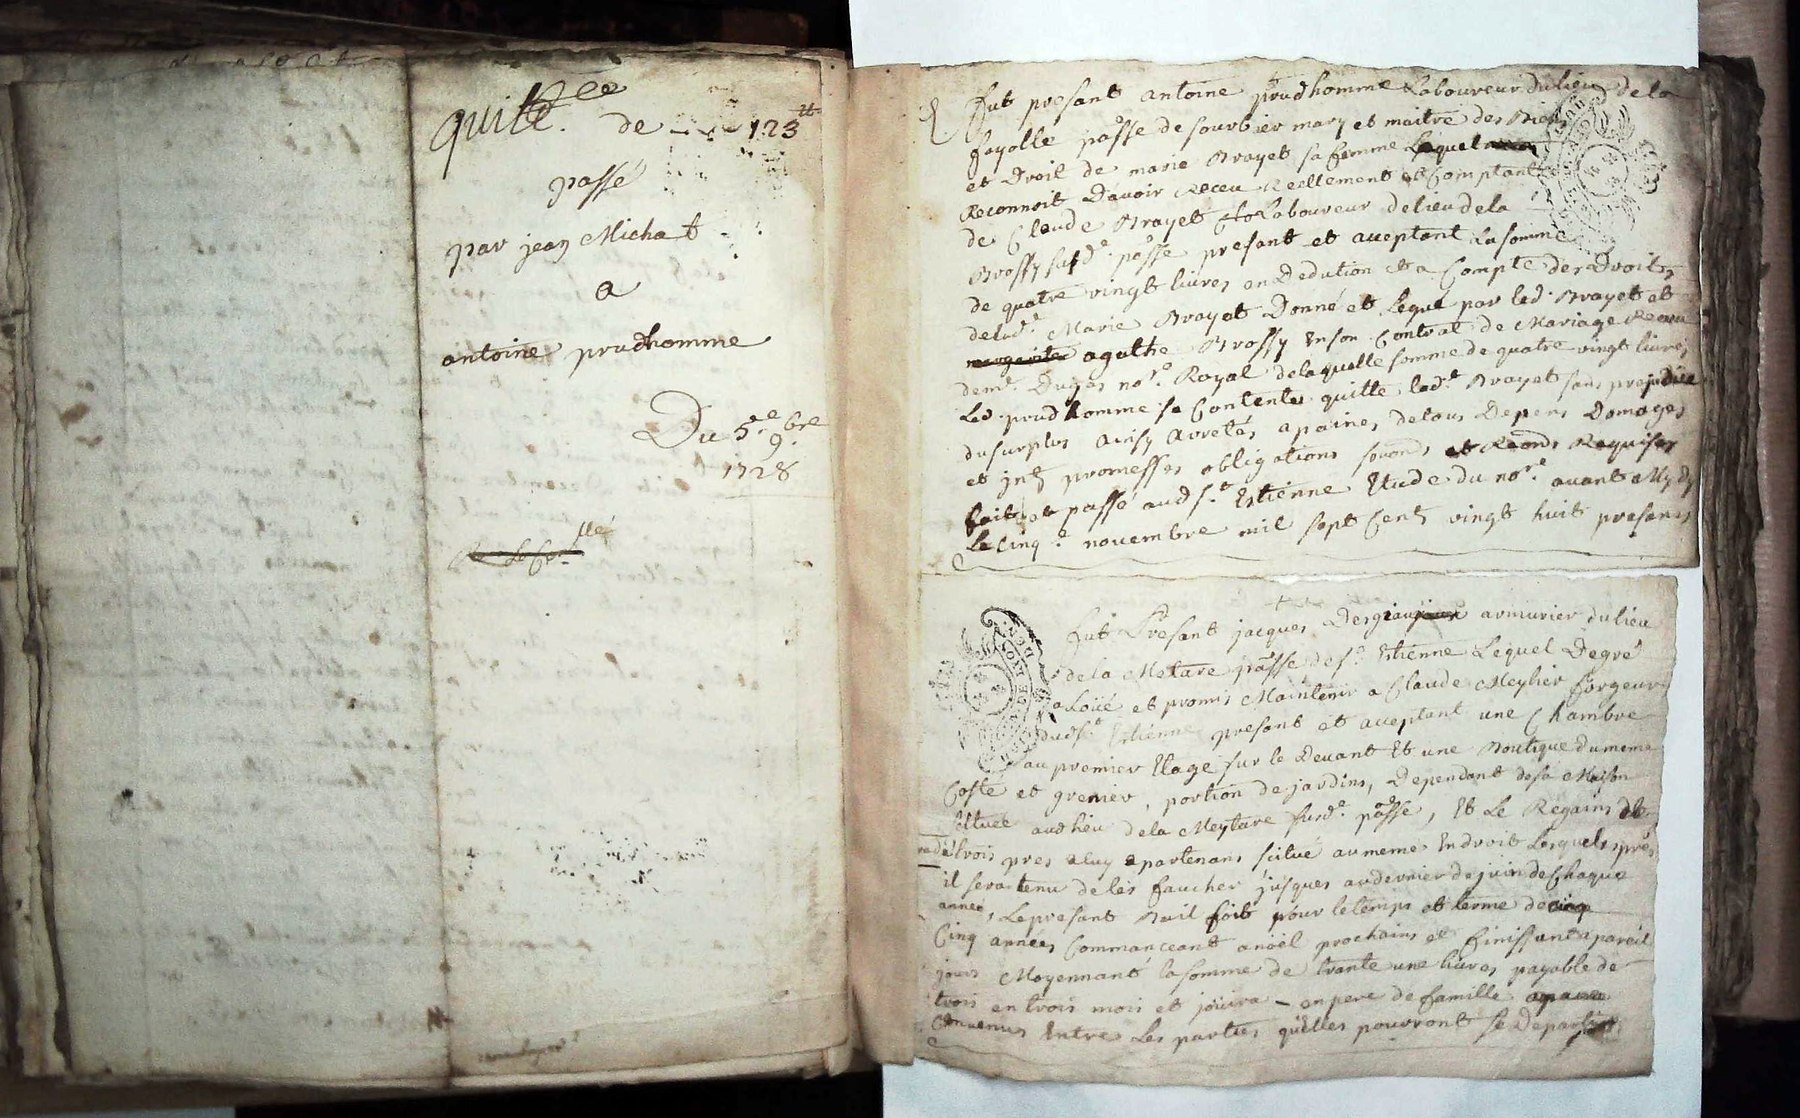 quittce
de 123tt
passé
par jean Micha t
a
antoine prudhomme
Du 5e 9bre
1728
fut presant antoine prudhomme Laboureur du lieu de la
fayolle poãsse de sourbier mary et maitre des Biens
et Droit de marie Brayet sa femme Lequel
Reconnoit Davoir Receu Reellement et Comptant
de Claude Brayet Laboureur de lieu de la
Brossy susd.e poãsse presant et aceptant la somme
de quatre vingt livres en Dedution et a Compte des Droits
de lad.e Marie Brayet Donné et Legué par led. Brayet et
agathe Brossy En son Contrat de Mariage Receu
de m.e Dugas no.re Royal de laquelle somme de quatre vingt livres
Led. prudhomme se Contente quitte led.t Brayet sans prejudice
du surplus ainsy arretés a paines de tous Depens Domages
et jnt promesses obligations et Requises
fait et passé aud s.t Estienne Etude du no.re avant Mydy
le cinq.e novembre mil sept Cent vingt huit presans
fut Presant jacques armurier du lieu
de la Metare poãsse de s.t Estienne Lequel De gré
a Loüé et promis Maintenir a Claude Meylier forgeur
dud s.t Estienne presant et aceptant une Chambre
au premier Etage sur le Devant Et une Boutique du meme
Coste et grenier, portion de jardins, Dependant de sa Maison
situee aud lieu de la Meytare susd.e poãsse, Et Le Regains de
trois pres a luy apartenans scitué au meme Endroit Lesquels prés
il sera tenu de les faucher jusques au dernier de juin de Chaque
année, Le presant Bail fait pour le temps et terme de cinq
Cinq années Commanceant a noël prochains et finissant a pareil
jours Moyennant la somme de trante une livres payable de
trois en trois mois et joüira en pere de famille
Convenus Entre Les parties quElles pourront se Departir